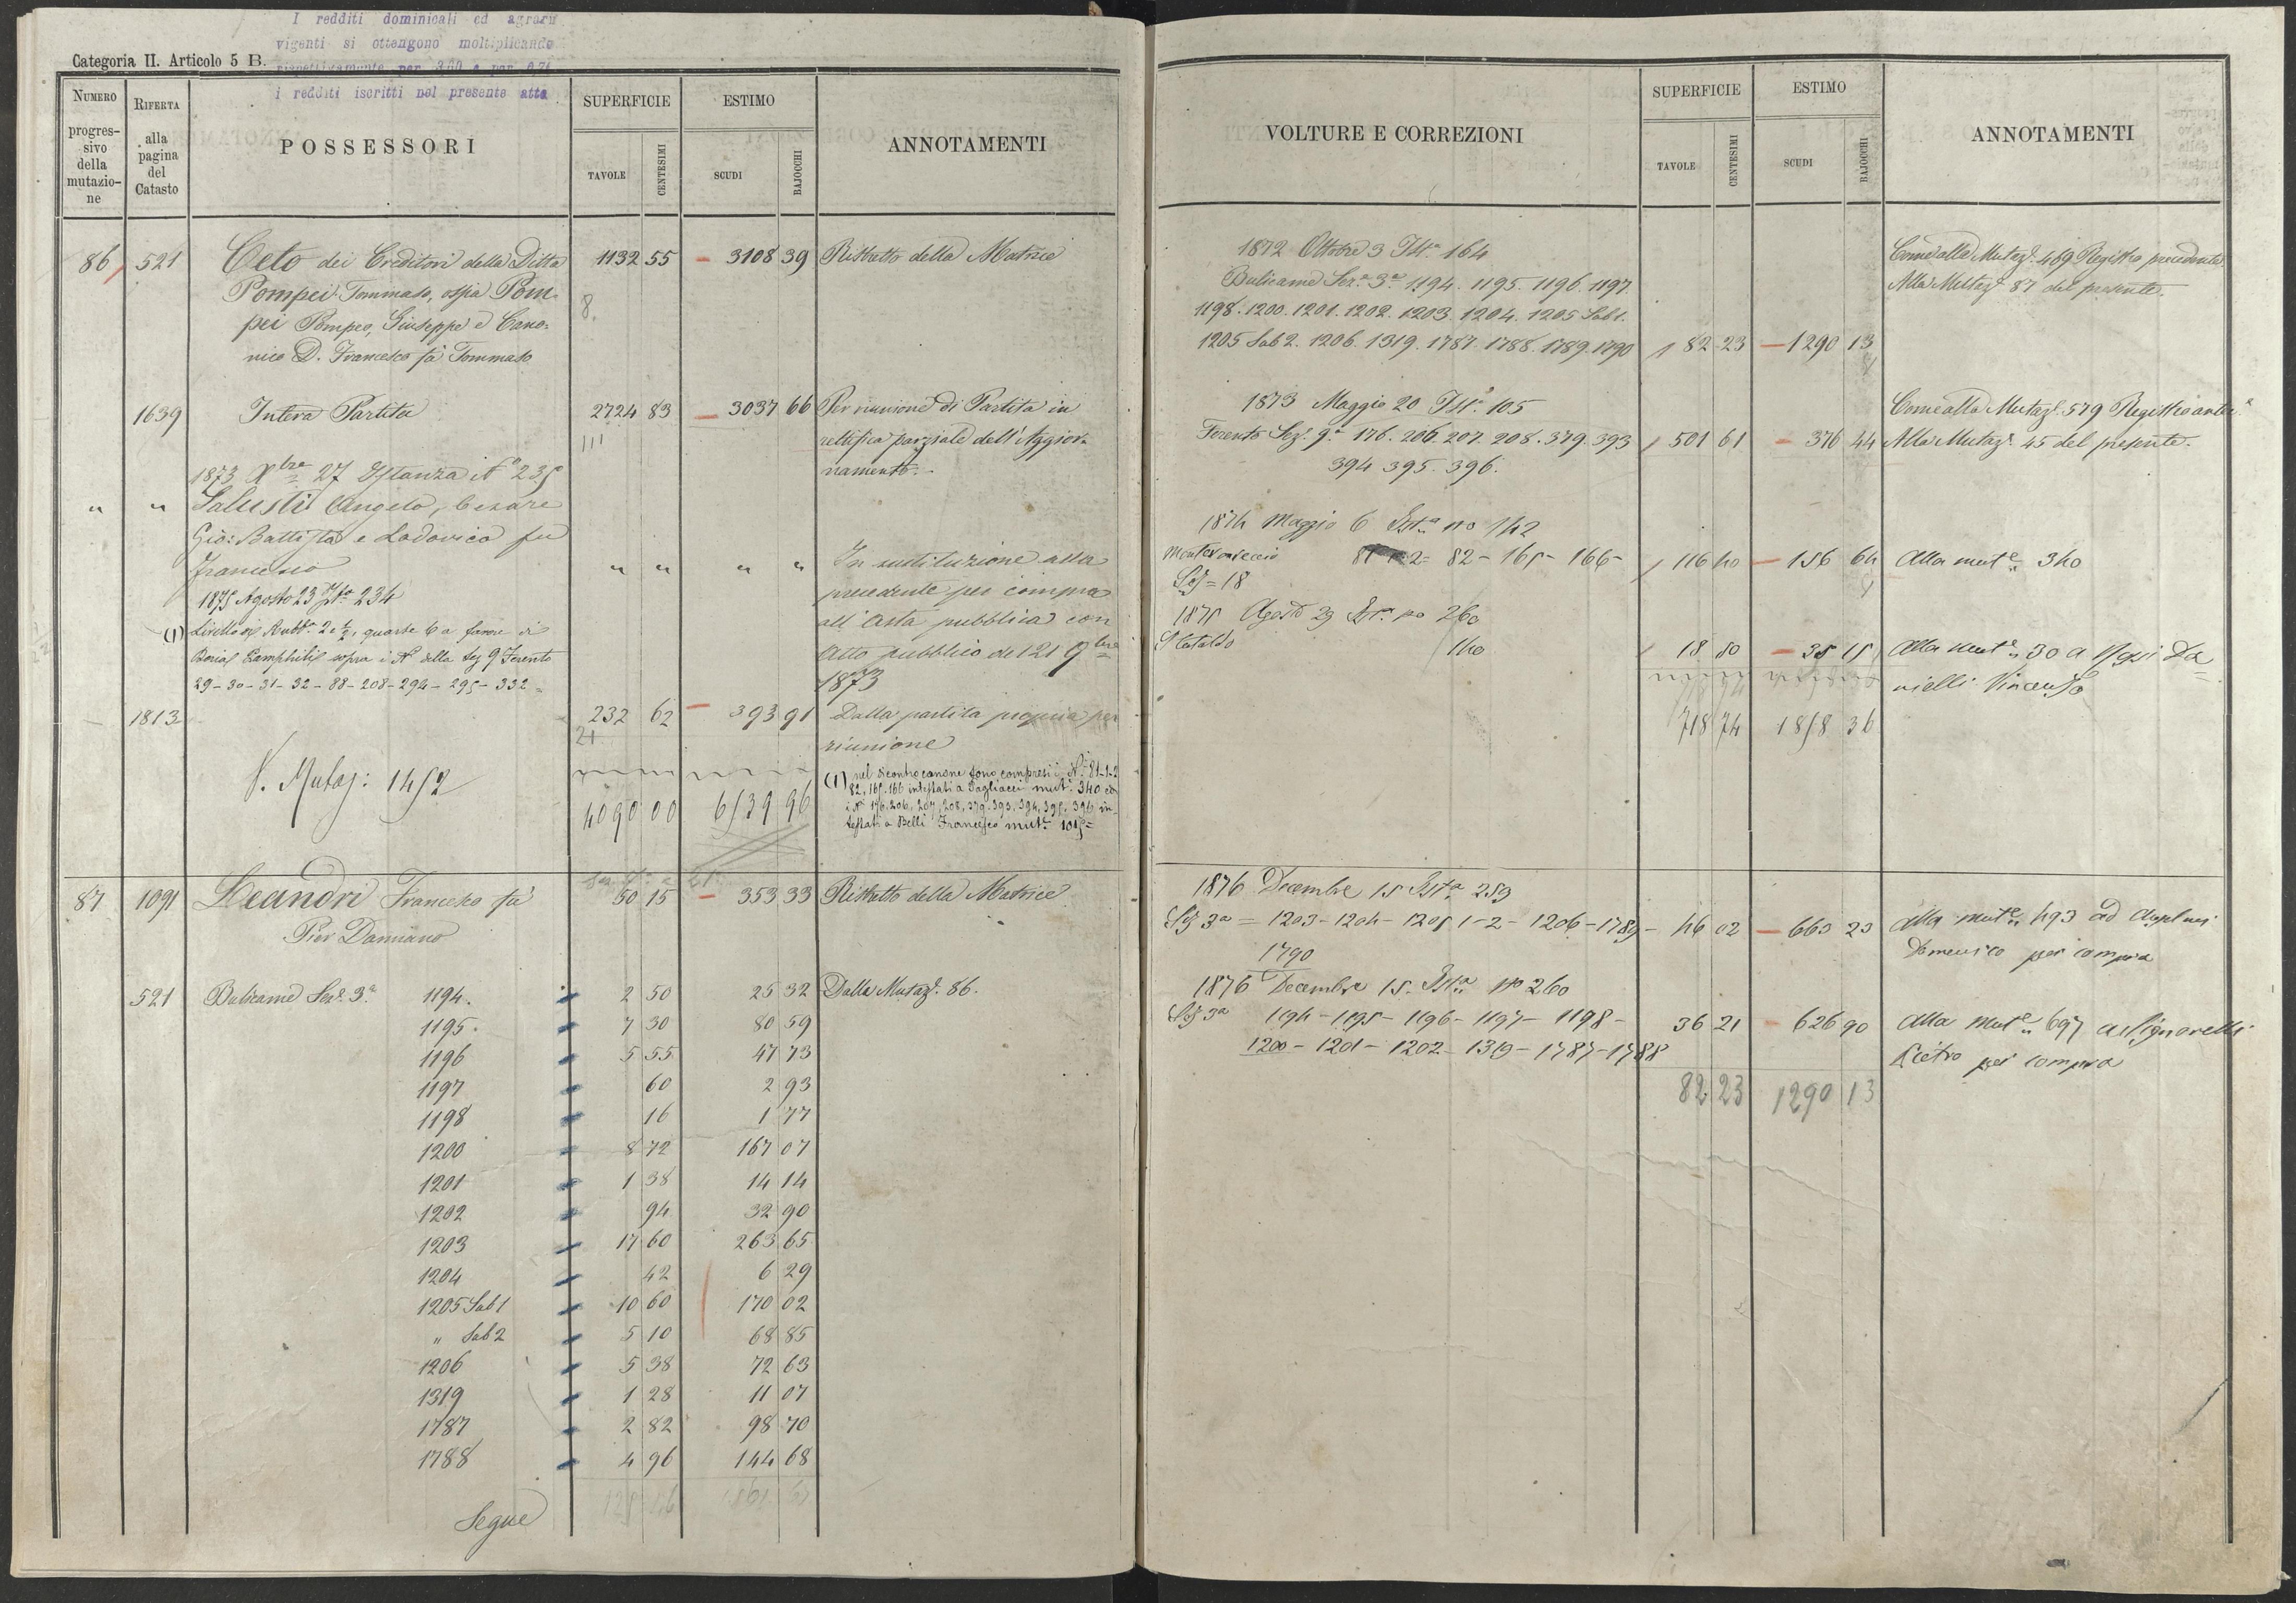 I redditi dominicali ed agrari
vigenti si ottengono moltiplicando
rispettivamente per 3,60 e per
i redditi iscritti nel presente atto
Categoria II. Articolo 5 B.
NUMERO progressivo della mutazione
RIFERTA alla pagina del Catasto
POSSESSORI
SUPERFICIE
TAVOLE CENTESIMI
ESTIMO
SCUDI BAJOCCHI
ANNOTAMENTI
86 521 Ceto dei Creditori della Ditta 1132 55 3108 39 Ristretto della Matrice
Pompei Tommaso, ossia Pom-
pei Pompeo, Giuseppe e Cano-
nico D. Francesco fu Tommaso
8.
1639 Intera Partita 2724 83 3037 66 Per riunione di Partita in
rettifica parziale dell'Aggior-
namento.
111
1873 Xbre 27 Istanza N° 235
" " Salusti Angelo, Cesare
Gio: Battista e Lodovico fu
Francesco " " " " In sustituzione alla
precedente per compra
all'Asta pubblica con
Atto pubblico del 21 9bre
1873
1875 Agosto 23 Ista 234
(1) Livello di Rubb. 2 e ½, quarte 6 a favore di
Doria Pamphilj sopra i N. della Sez 9 Ferento
29-30-31-32-88-208-294-295-332=
1813 232 62 393 91 Dalla partita propria per
riunione
21
V. Mutaz: 1452
4090 00 6539 96
(1) nel dicontro canone sono compresi i N. 81-1-2
82, 165, 166 intestati a Pagliacci mut. 340 ed
i N. 176, 206, 207, 208, 379, 393, 394, 395, 396 in-
testati a Belli Francesco mut. 1015=
87 1091 Leandri Francesco fu 50 15 353 33 Ristretto della Matrice
Pier Damiano
521 Bulicame Sez. 3a 1194. 2 50 25 32 Dalla Mutaz. 86.
1195. 7 30 80 59
1196 5 55 47 73
1197 60 2 93
1198 16 1 77
1200 8 72 167 07
1201 1 38 14 14
1202 94 32 90
1203 17 60 263 65
1204 42 6 29
1205 Sub 1 10 60 170 02
" Sub 2 5 10 68 85
1206 5 38 72 63
1319 1 28 11 07
1787 2 82 98 70
1788 4 96 144 68
Segue
VOLTURE E CORREZIONI
SUPERFICIE
TAVOLE CENTESIMI
ESTIMO
SCUDI BAJOCCHI
ANNOTAMENTI
1872 Ottobre 3 Ista 164 Come alla Mutaz. 469 Registro precedente
Bulicame Sez. 3a 1194. 1195. 1196. 1197. Alla Mutaz. 87 del presente.
1198. 1200. 1201. 1202. 1203. 1204. 1205 Sub 1.
1205 Sub 2. 1206. 1319. 1787. 1788. 1789. 1790 82 23 1290 13
1873 Maggio 20 Ista 105 Come alla Mutaz. 579 Registro
Ferento Sez. 9a 176. 206. 207. 208. 379. 393 501 61 376 44 Alla Mutaz. 45 del presente.
394. 395. 396.
1874 Maggio 6 Ista no 142
2= 82-165-166- 116 10 156 64 Alla mute 340
Sez=18
1875 Agosto 29 Ista no 260
S Cataldo 140 18 80 35 15 Alla mute 30 a
nielli Vincenzo
718 74 1858 36
1876 Decembre 15 Ista 259
Sez 3a = 1203-1204-1205 1-2-1206-1789- 46 02 663 23 Alla mute 493 ad
1790 Domenico per compra
1876 Decembre 15 Ista no 260
Sez 3a 1194-1195-1196-1197-1198- 36 21 626 90 Alla mute 697 a Signorelli
1200-1201-1202-1319-1787-1788 Pietro per compra
82 23 1290 13